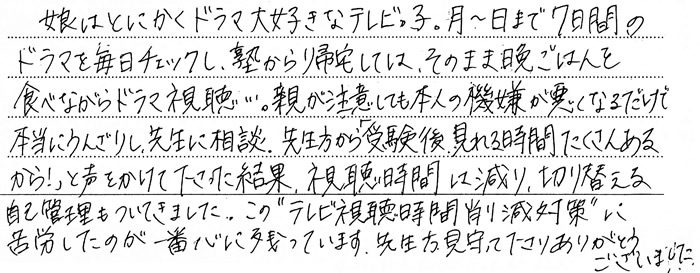 娘はとにかくドラマ大好きなテレビっ子。月～日まで7日間の
ドラマを毎日チェックし、塾から帰宅しては、そのまま晩ごはんを
食べながらドラマ視聴…。親が注意しても本人の機嫌が悪くなるだけで
本当にうんざりし、先生に相談。先生方から「受験後、見れる時間たくさんある
から！」と声をかけて下さった結果、視聴時間は減り、切り替える
自己管理もついてきました。この“テレビ視聴時間削減対策”に
苦労したのが一番心に残っています。先生方見守って下さりありがとう
ございました。